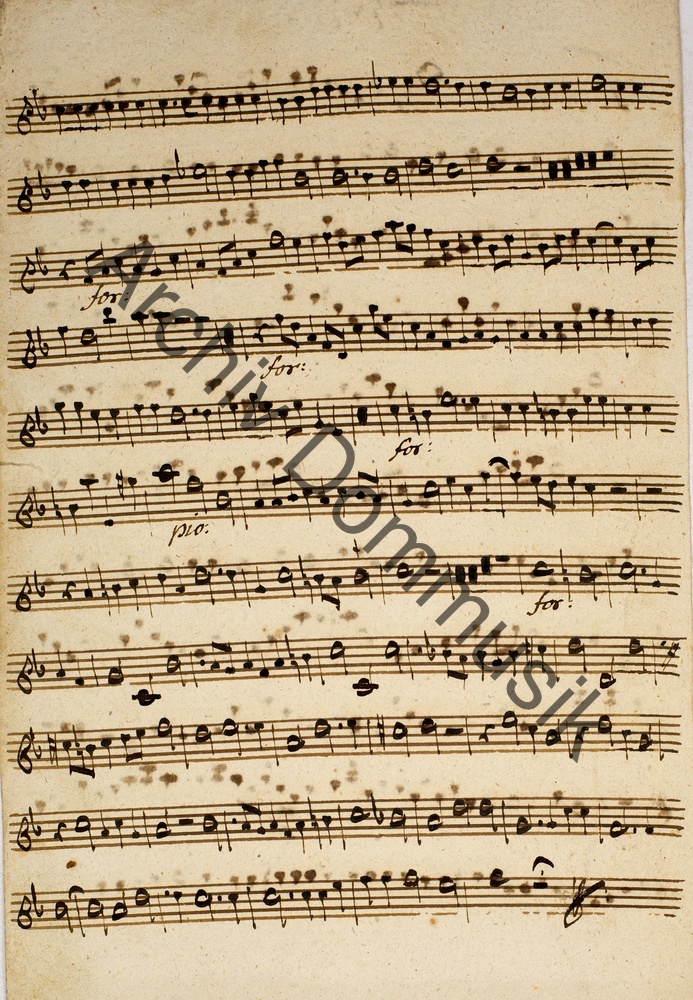 for:
for:
for:
pio:
for:
Archiv Dommusik